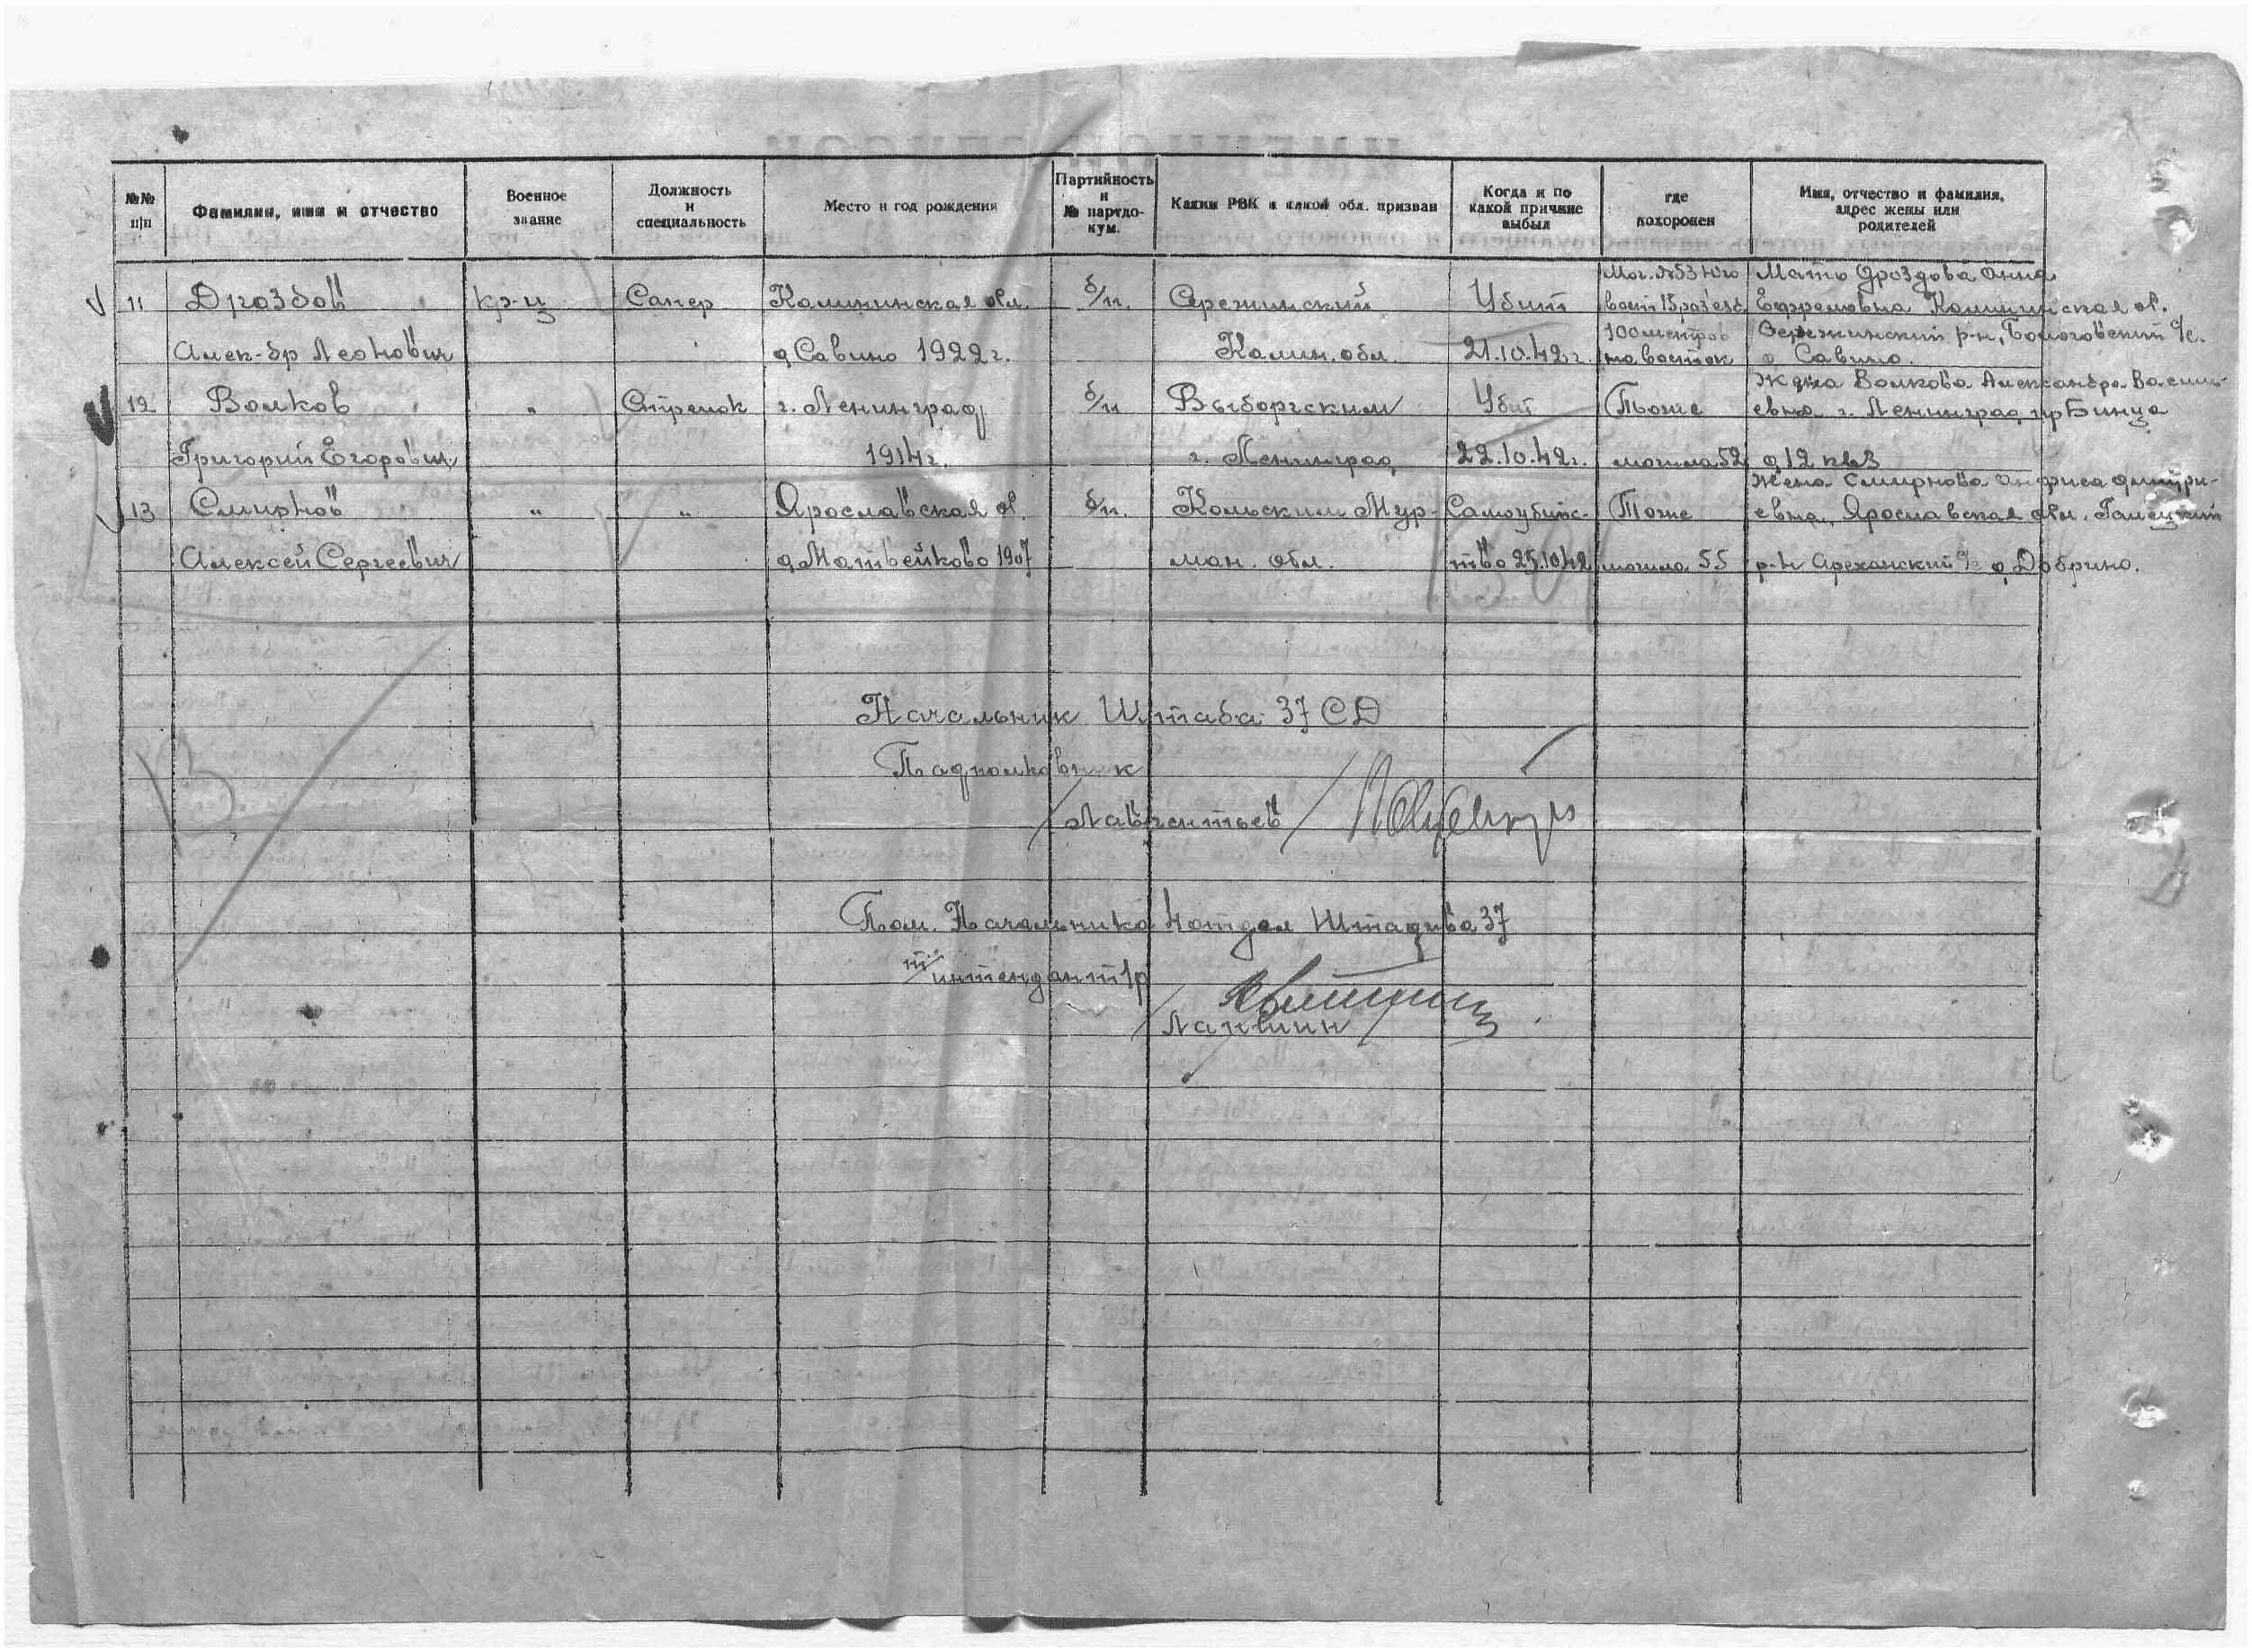 №№ п/п
Фамилия, имя и отчество
Военное звание
Должность и специальность
Место и год рождения
Партийность и № партдокум.
Каким РВК и какой обл. призван
Когда и по какой причине выбыл
где похоронен
Имя, отчество и фамилия, адрес жены или родителей
11 Дроздов кр-ц Сапер Калининская обл. б/п. Убит Мог. №53 Юго Мать Дроздова Анна
вост 15 раз'езд Ефремовна Калининская об.
Алек-др Леонович д Савино 1922 г. Калин. обл. 21.10.42 г. 100 метров р-н, с/с.
на восток д Савино.
12 Волков " Стрелок г. Ленинград б/п Выборгским Убит Тоже Жена Волкова Александра Василь-
евна г. Ленинград пр
Григорий Егорович 1914 г. г. Ленинград 22.10.42 г. могила 52 д 12 кв 3
13 Смирнов " " Ярославская об. б/п. Кольским Мур- Самоубийс- Тоже Жена Смирнова Анфиса Дмитри-
евна, Ярославская обл.
Алексей Сергеевич д Матвейково 1907 ман. обл. тво 25.10.42 могила 55 р-н с/с д Добрино.
Начальник Штаба 37 СД
Подполковник
/Лаврентьев/
13
Пом. Начальника 4 отдел Штадива 37
т/интендант 1 р
/Лапшин/